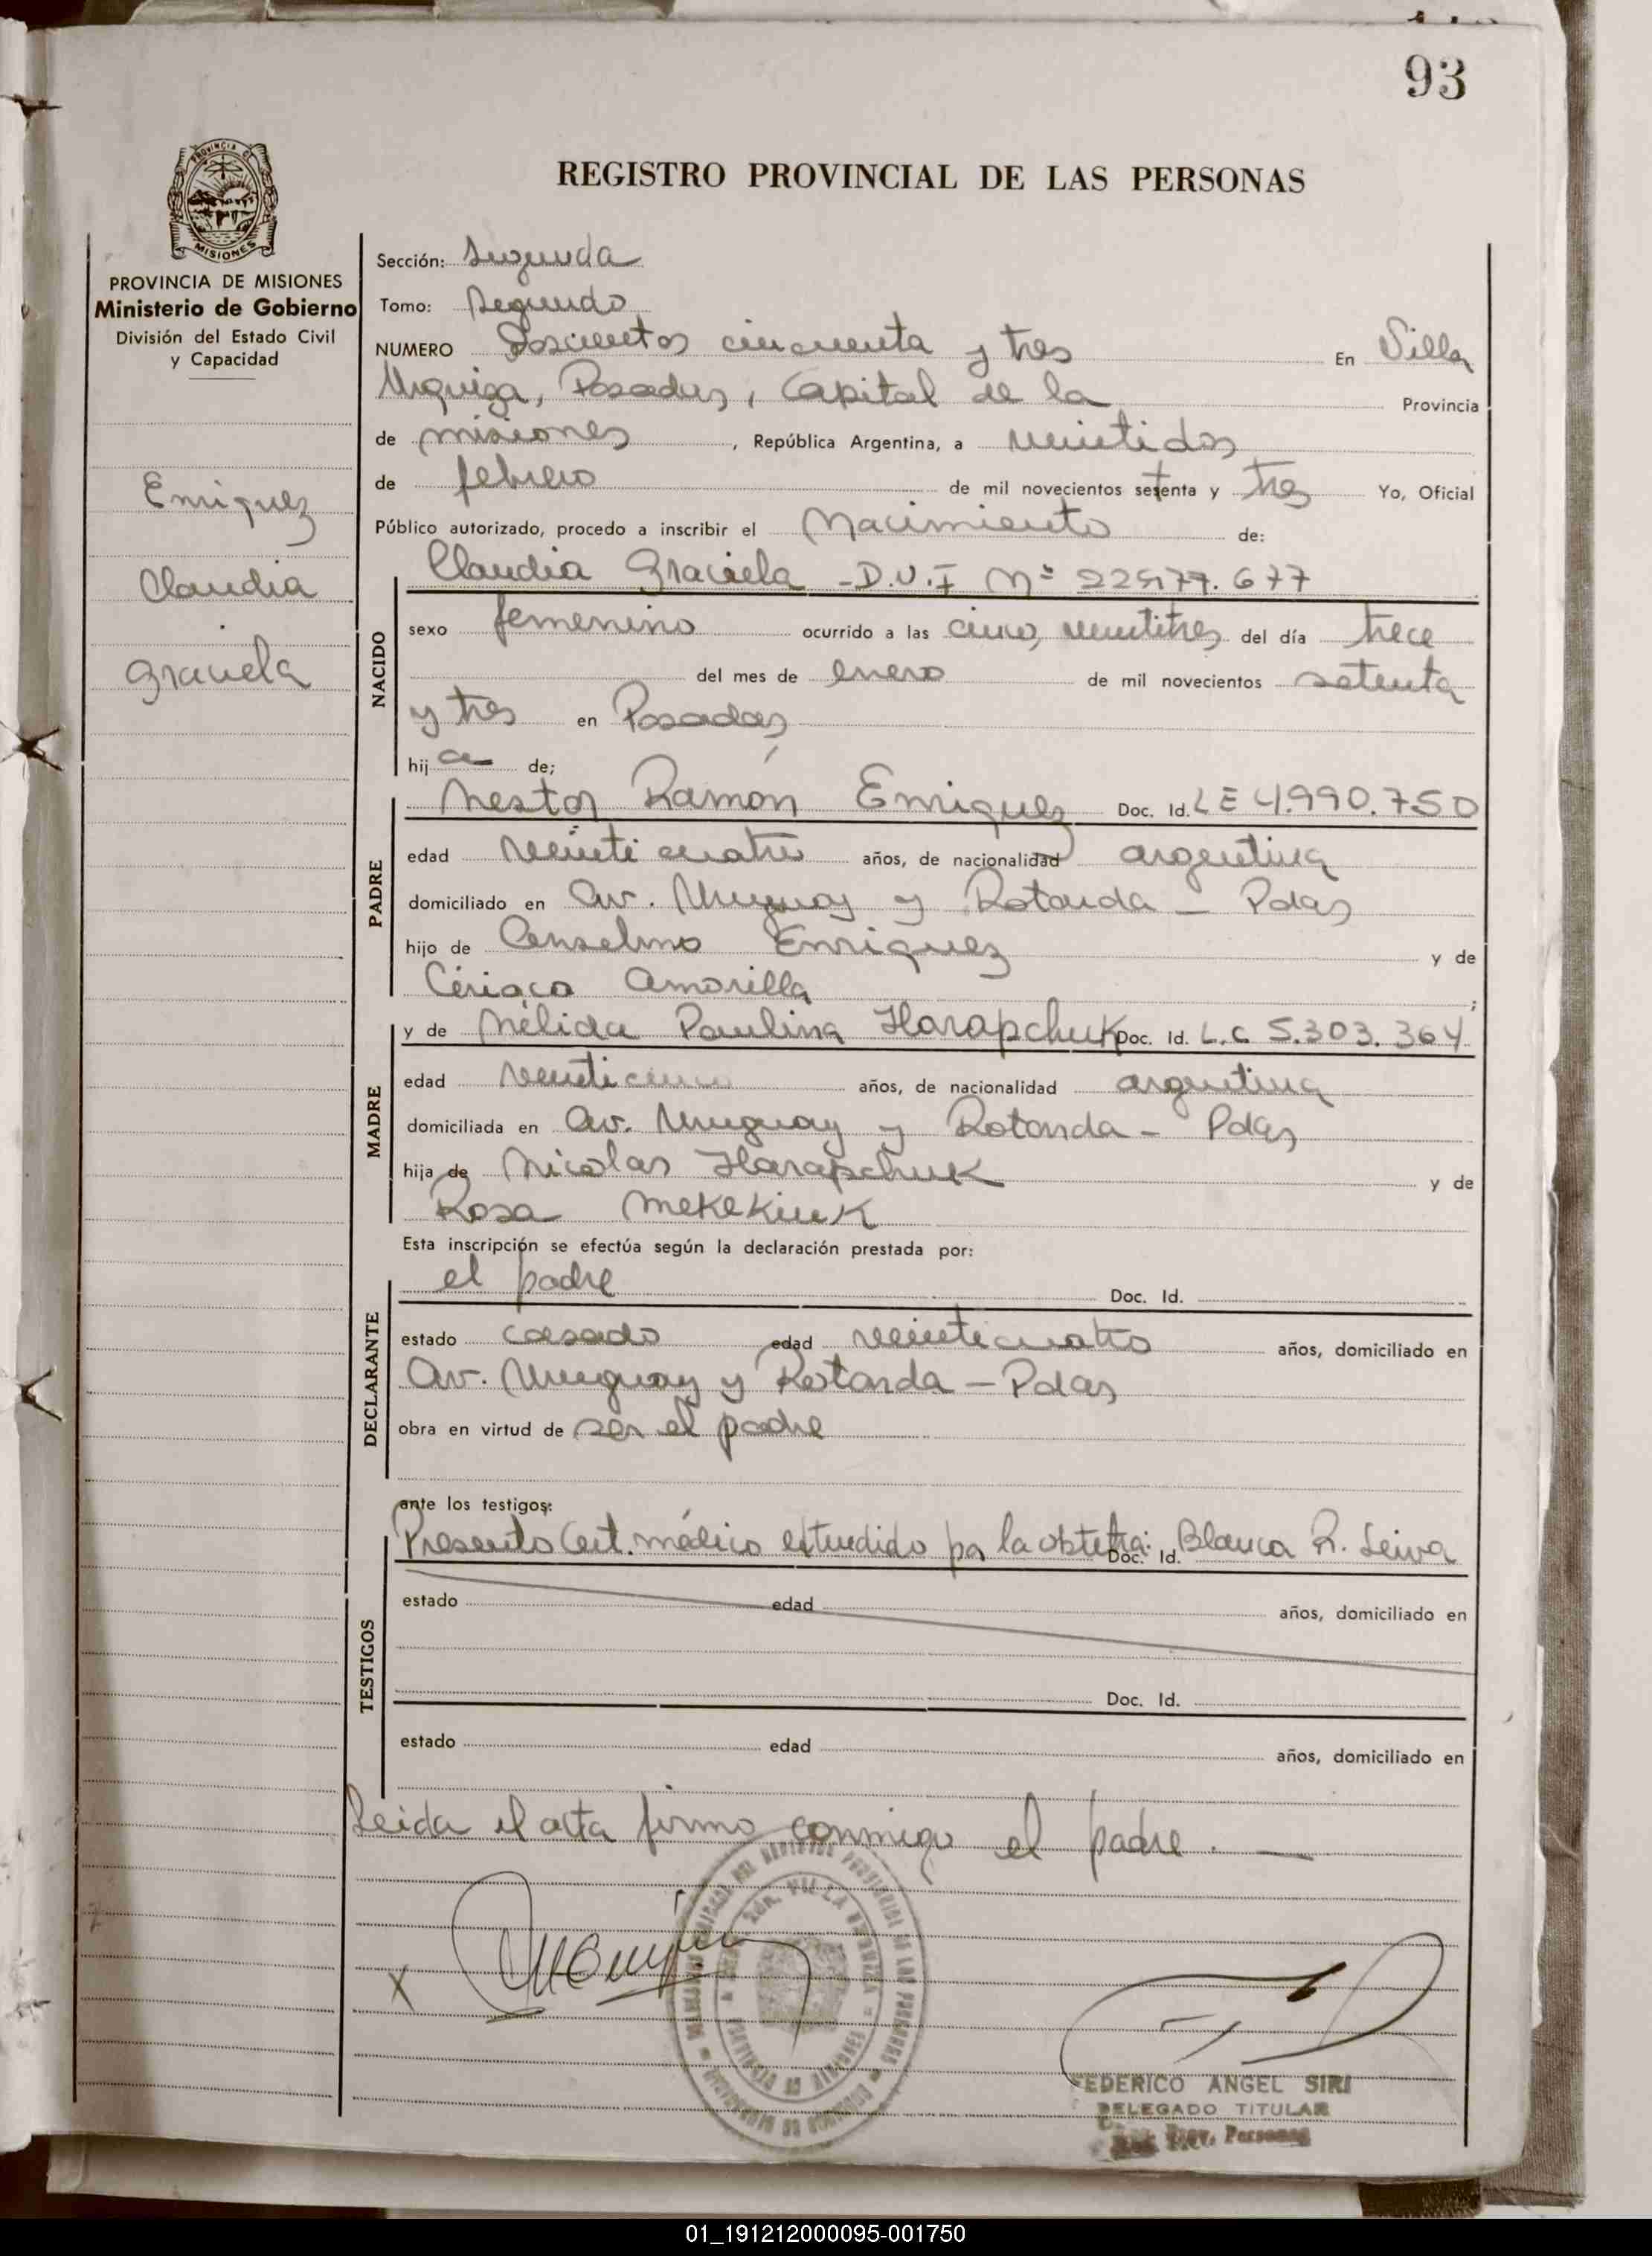 93
PROVINCIA DE
MISIONES
REGISTRO PROVINCIAL DE LAS PERSONAS
PROVINCIA DE MISIONES
Ministerio de Gobierno
División del Estado Civil
y Capacidad
Enriquez
Claudia
Graciela
Sección: Segunda
Tomo: Segundo
NUMERO Doscientos cincuenta y tres En Villa
Urquiza, Posadas, Capital de la Provincia
de misiones, República Argentina, a veintidos
de febrero de mil novecientos setenta y tres Yo, Oficial
Público autorizado, procedo a inscribir el Nacimiento de:
Claudia Graciela - D.U.I Nº 677
NACIDO
sexo femenino ocurrido a las cinco, veintitres del día trece
del mes de enero de mil novecientos setenta
y tres en Posadas
hija de;
PADRE
Nestor Ramón Enriquez Doc. Id. LE 4.990.750
edad veinticuatro años, de nacionalidad argentina
domiciliado en Av. Uruguay y Rotonda - Pdas
hijo de Anselmo Enriquez y de
Ciriaca Amarilla ;
MADRE
y de Nélida Paulina Harapchuk Doc. Id. L.C 5.303.364
edad veinticinco años, de nacionalidad argentina
domiciliada en Av. Uruguay y Rotonda - Pdas
hija de Nicolas Harapchuk y de
Rosa
Esta inscripción se efectúa según la declaración prestada por:
DECLARANTE
el padre Doc. Id.
estado casado edad veinticuatro años, domiciliado en
Av. Uruguay y Rotonda - Pdas
obra en virtud de ser el padre
ante los testigos:
TESTIGOS
Presento Cert. médico extendido por la obstetra: Doc. Id. Blanca R. Leiva
estado edad años, domiciliado en
Doc. Id.
estado edad años, domiciliado en
Leida el acta firma conmigo el padre.
X
FEDERICO ANGEL SIRI
DELEGADO TITULAR
Prov. Personas
01_191212000095-001750